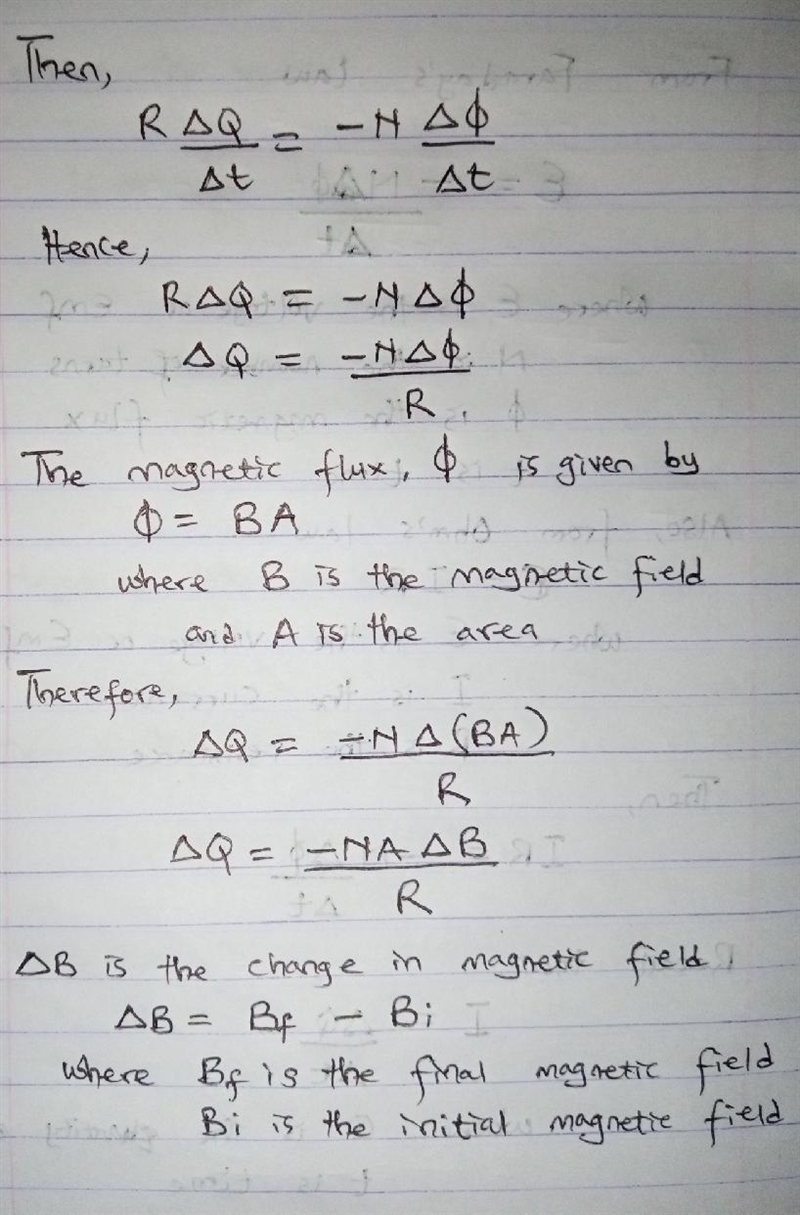 Then,
R ΔQ/Δt = -N Δϕ/Δt
Hence,
RΔQ = -NΔϕ
ΔQ = -NΔϕ/R
The magnetic flux, ϕ is given by
ϕ = BA
where B is the magnetic field
and A is the area
Therefore,
ΔQ = -NΔ(BA)/R
ΔQ = -NA ΔB/R
ΔB is the change in magnetic field
ΔB = Bf - Bi
where Bf is the final magnetic field
Bi is the initial magnetic field